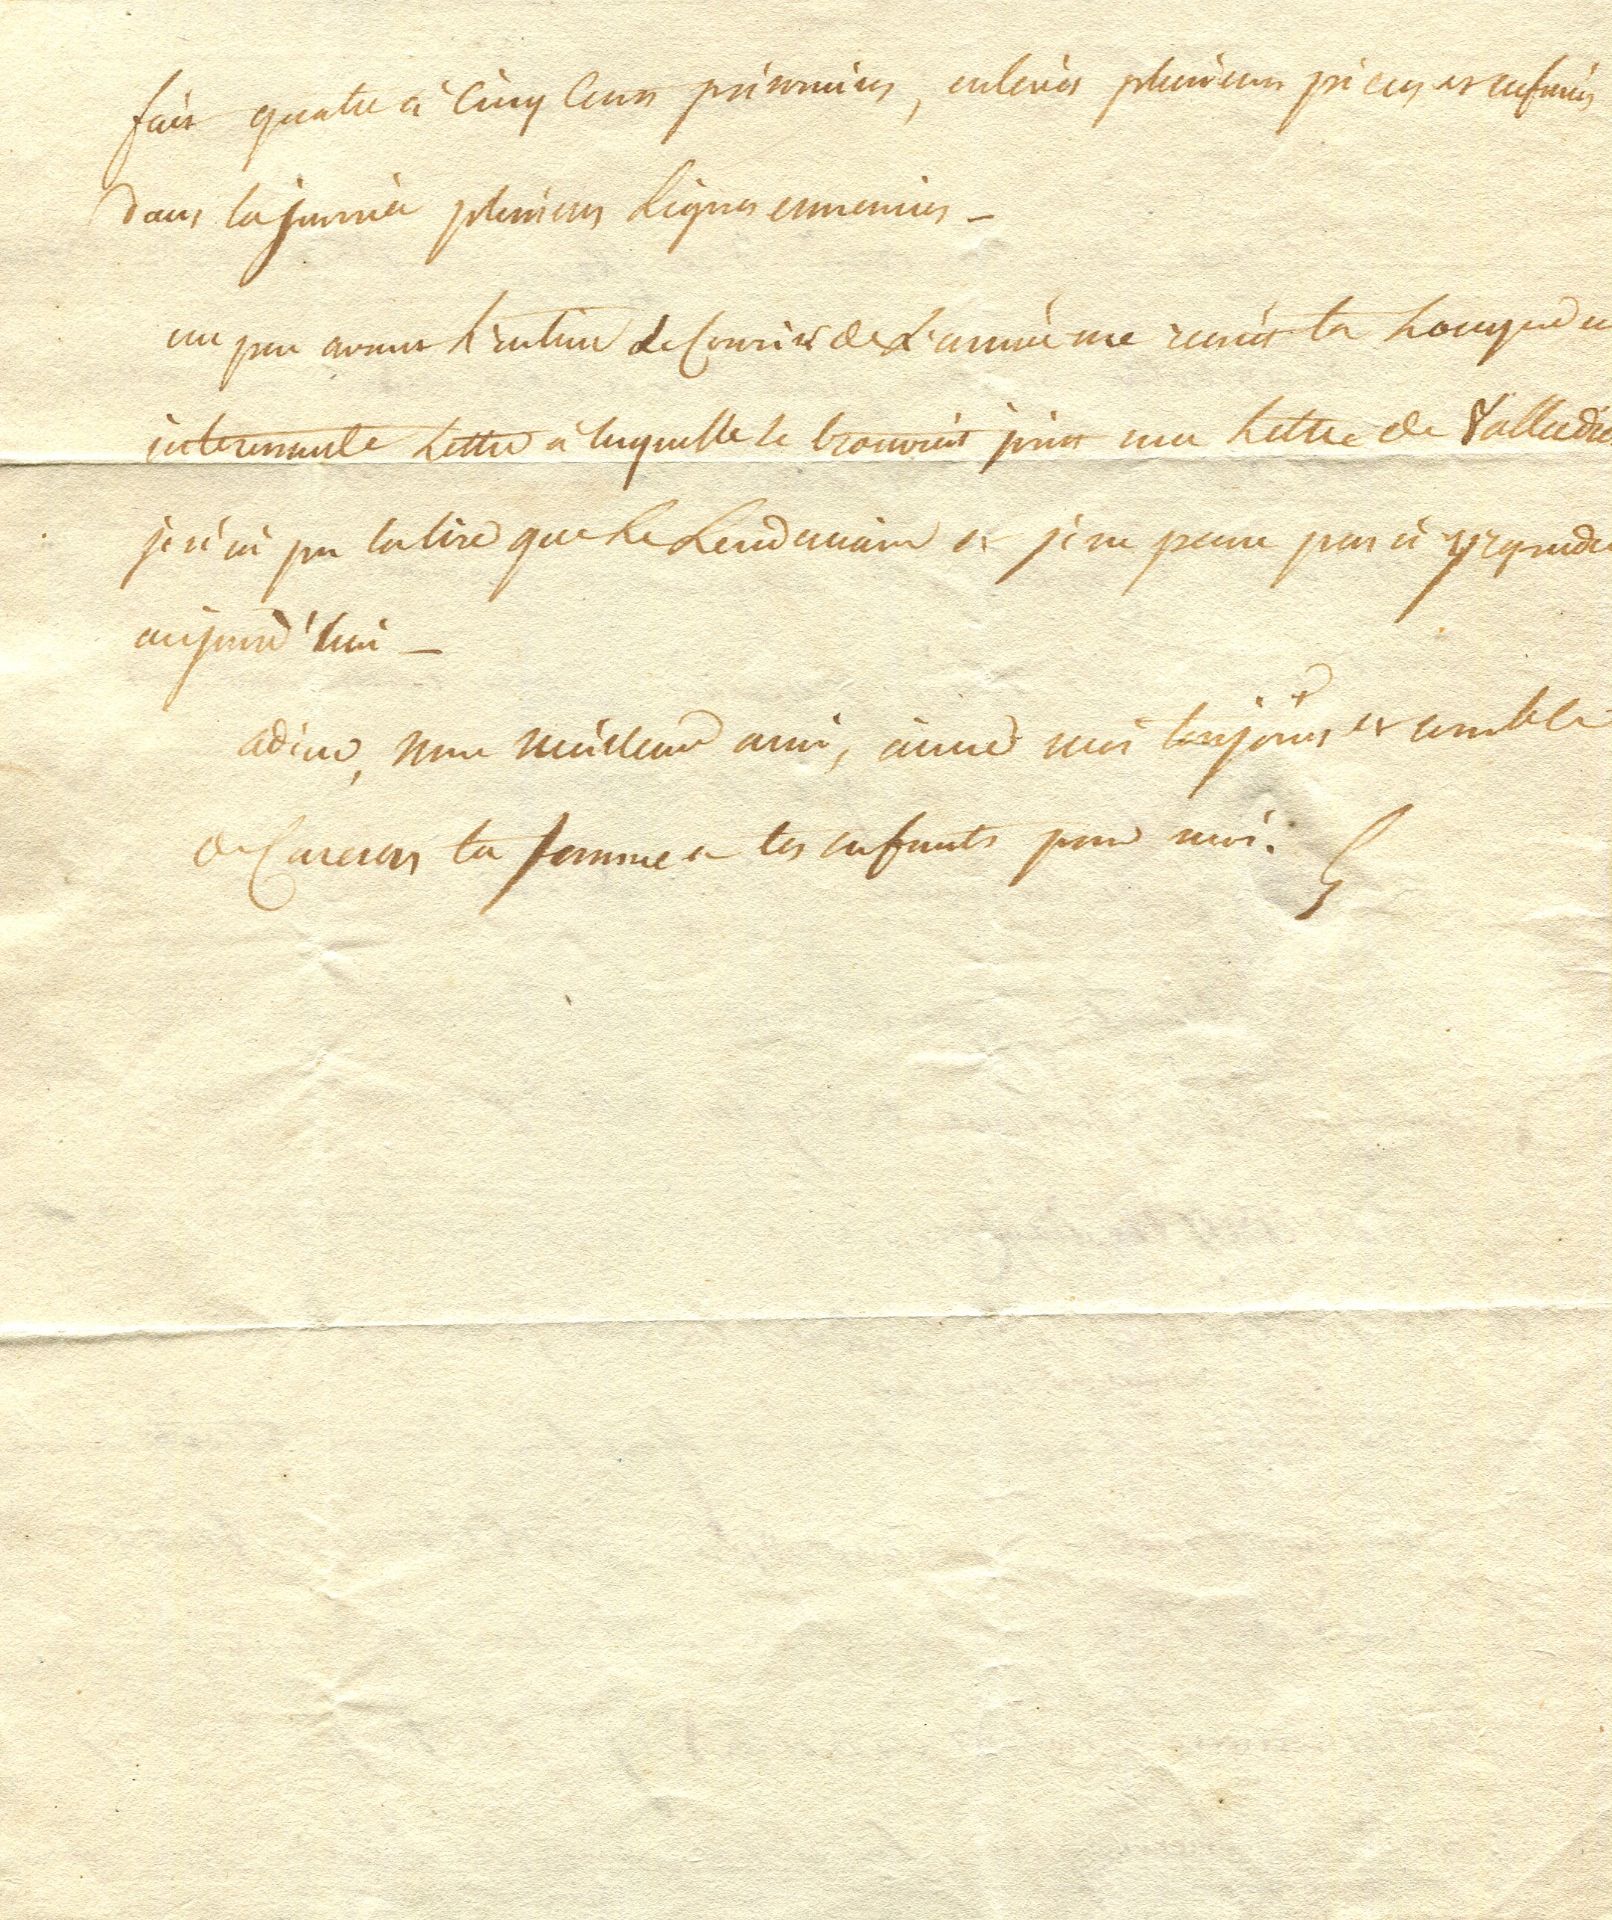 fait quatre à Cinq Cens prisonniers, enlevés plusieurs pieces et enfoncés
dans la journée plusieurs Lignes ennemies _
un peu avant L'entrée du Courier de L'armée me remit ta Longue et
interessante Lettre à laquelle se trouvoit joint une Lettre de
je n'ai pu la lire que Le Lendemain et je ne pense pas à y repondre
aujourd'hui _
adieu, mon meilleur ami, aime moi toujours et comble
de Caresses ta femme et tes enfants pour moi.